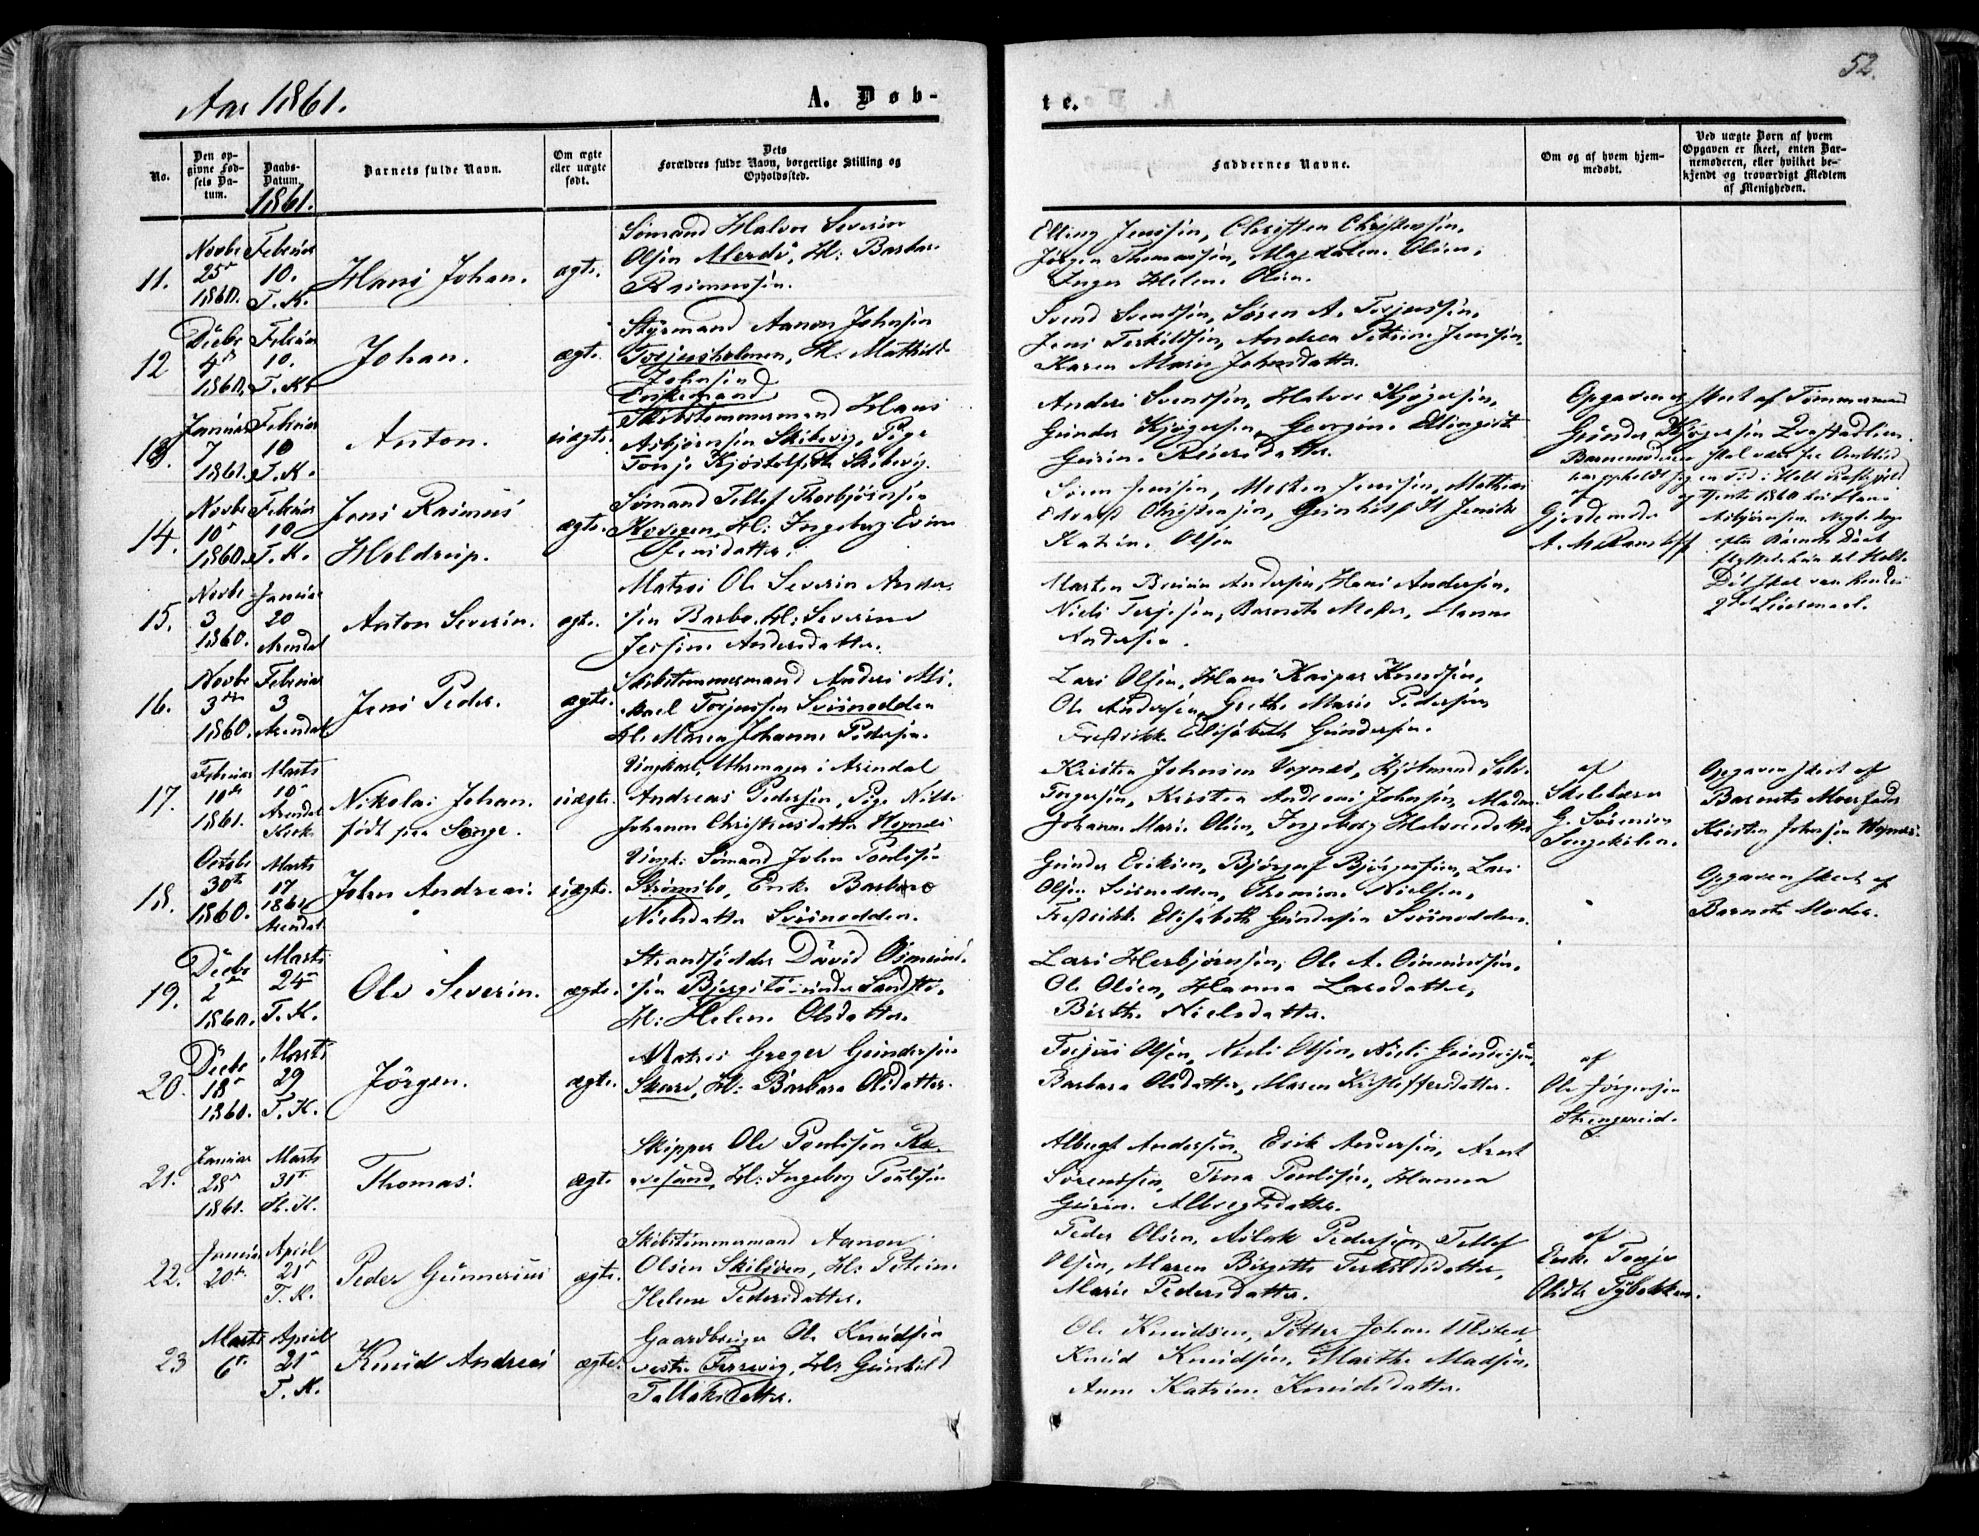 52.
Aar 1861.
A. Døb-
te.
No.
Den op-
givne Fød-
sels Da-
tum.
Daabs-
Datum.
1861.
Barnets fulde Navn.
Om ægte
eller uægte
født.
Dets
Forældres fulde Navn, borgerlige Stilling og
Opholdssted.
Faddernes Navne.
Om og af hvem hjem-
medøbt.
Ved uægte Børn af hvem
Opgaven er skeet, enten Bar-
nemoderen, eller hvilket be-
kjendt og troværdigt Medlem
af Menigheden.
11.
Novbr
25de
1860.
Februar
10.
T. K.
Hans Johan.
ægte.
Sømand Halvor Severin
Olsen Merdø, H: Barbara
Rasmussen.
Elling Jenssen, Christen Christenssen,
Jørgen Thomassen, Magdalene Olsen,
Inger Helene Olsen.
12
Decbr
4de
1860.
Februar
10.
T. K.
Johan.
ægte.
Styrmand Aanon Johnsen
Torjusholmen, H: Mathilde
Johnsen
Svend Svendsen, Søren A. Torjussen,
Jens Terkildsen, Andrea Petrine Jenssen,
Karen Marie Johnsdatter.
13.
Januar
7
1861.
Februar
10
T. K.
Anton.
uægte.
Enkemand
Skibstømmermand Hans
Asbjørnsen Skibevig, Pige
Tonje Kjøstolfsdtr Skibevig.
Anders Svendsen, Halvor Kjøgersen,
Gunder Kjøgersen, Georgine
Gurine Reiersdatter.
Opgaven er skeet af Tømmermand
Gunder Kjøgersen
Barnemoderen skal være fra Omlid
har opholdt sig en Tid i Holt Præstegjeld
og tjente 1860 hos Hans
Asbjørnsen.
efter Barnets Daab
flyttede hun til Holt.
Det skal være hendes
2det Leiermaal.
14.
Novbr
10de
1860.
Februar
10
T. K.
Jens Rasmus
Holdrup.
ægte.
Sømand Tellef Thorbjørnsen
H: Ingeborg
Jensdatter.
Søren Jenssen, Morten Jenssen, Mathias
Edvard Christensen, Gunhild
Katrine Olsen
af
Gjordemoder
15.
Novbr
3
1860.
Januar
20
Arendal
Anton Severin.
ægte.
Matros Ole Severin Ander-
sen Barbo, H: Severine
Jessine Andersdatter.
Morten Andersen, Hans Andersen,
Niels Terjesen, Barnets Moder, Hanne
Andersen.
16.
Novbr
3die
1860.
Februar
3
Arendal
Jens Peder.
ægte.
Skibstømmermand Anders Mi-
kael Torjussen Svinodden
H: Maren Johanne Pedersen.
Lars Olsen, Hans Kaspar Knudsen,
Ole Andersen, Grethe Marie Pedersen
Fredrikke Elisabeth Gundersen.
17.
Februar
10de
1861.
Marts
10
Arendal
Kirke
Nikolai Johan.
født paa Songe.
uægte.
Ungkarl, Uhrmager i Arendal
Andreas Pedersen, Pige Nille
Johanne Christensdatter
Kristen Johnsen
Torgersen, Kirsten Andrea Johnsen,
Johanne Marie Olsen, Ingeborg Halvorsdatter
af
Skolelærer
G. Sørensen
Songekilen.
Opgaven skeet af
Barnets Morfader
Kristen Johnsen
18.
Octobr
30te
1860.
Marts
17
1861
Arendal
John Andreas.
uægte.
Ungk: Sømand John Poulsen
Strømsbo, Enke Barbara
Nielsdatter Svinodden.
Gunder Eriksen, Bjørgulf Bjørgufsen, Lars
Olsen Svinodden, Nielsen,
Fredrikke Elisabeth Gundersen Svinodden.
Opgaven skeet af
Barnets Moder.
19.
Decbr
2den
1860.
Marts
24
T. K.
Ole Severin.
ægte.
Strandsidder David Osmund-
sen under Sandtø,
H: Helene Olsdatter.
Lars Herbjørnsen, Ole A. Osmundsen,
Ole Olsen, Hanna Larsdatter,
Birthe Nielsdatter.
20.
Decbr
18
1860.
Marts
29
T. K.
Jörgen.
ægte.
Matros Greger Gundersen
Skare, H: Barbara Olsdatter.
Torjus Olsen, Niels Olsen, Niels Gundersen,
Barbara Olsdatter, Maren Kristoffersdatter.
af
Ole Jørgensen
Strengereid.
21.
Januar
28
1861.
Marts
31te
Thomas.
ægte
Skipper Ole Poulssen Ra-
vnesund, H: Ingeborg Poulsen
Albregt Andersen, Erik Andersen, Arent
Sørensen, Trna Poulsen, Hanna
Gurine Albregtsdatter.
22.
Januar
20de
April
21
T. K.
Peder Gunnerius
ægte.
Skibstømmermand Aanon
Olsen, H: Petrine
Helene Pedersdatter.
Peder Olsen, Aslak Pedersen, Tellef
Olsen, Maren Birgitte Terkildsdatter,
Marie Pedersdatter.
af
Enke Tonje
Olsdtr Tybakken.
23
Marts
6te
April
21
T. K.
Knud Andreas
ægte.
Gaardbruger Ole Knudsen
vestre Ferrevig, H: Gunhild
Tallaksdatter.
Ole Knudsen, Petter Johan Ulsted,
Knud Knudsen, Marthe Madsen,
Anne Katrine Knudsdatter.